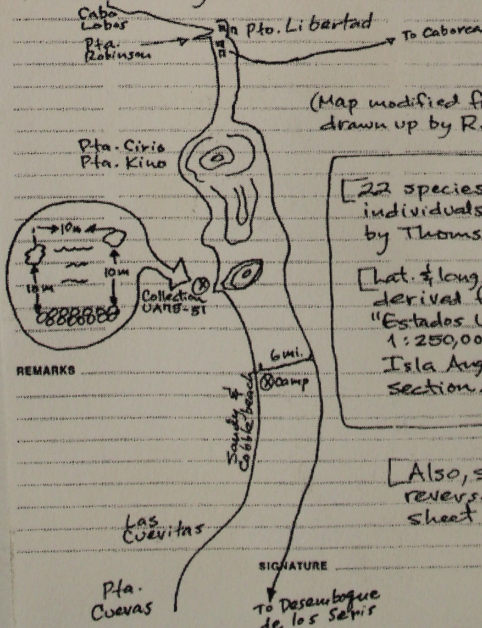 Cabo
Lobos
Pta.
Robinson
Pto. Libertad
To Caborca
(Map modified f
drawn up by R.
Pta. Cirio
Pta. Kino
[22 species
individuals
by Thoms
[Lat. & long
derived f
"Estados U
1:250,00
Isla Ang
section.
10m
10m
10m
Collection
UA78-51
REMARKS
6 mi.
Camp
Sandy &
Cobble beach
[Also, s
revers
sheet
Las
Cuevitas
SIGNATURE
Pta.
Cuevas
To Desemboque
de los Seris